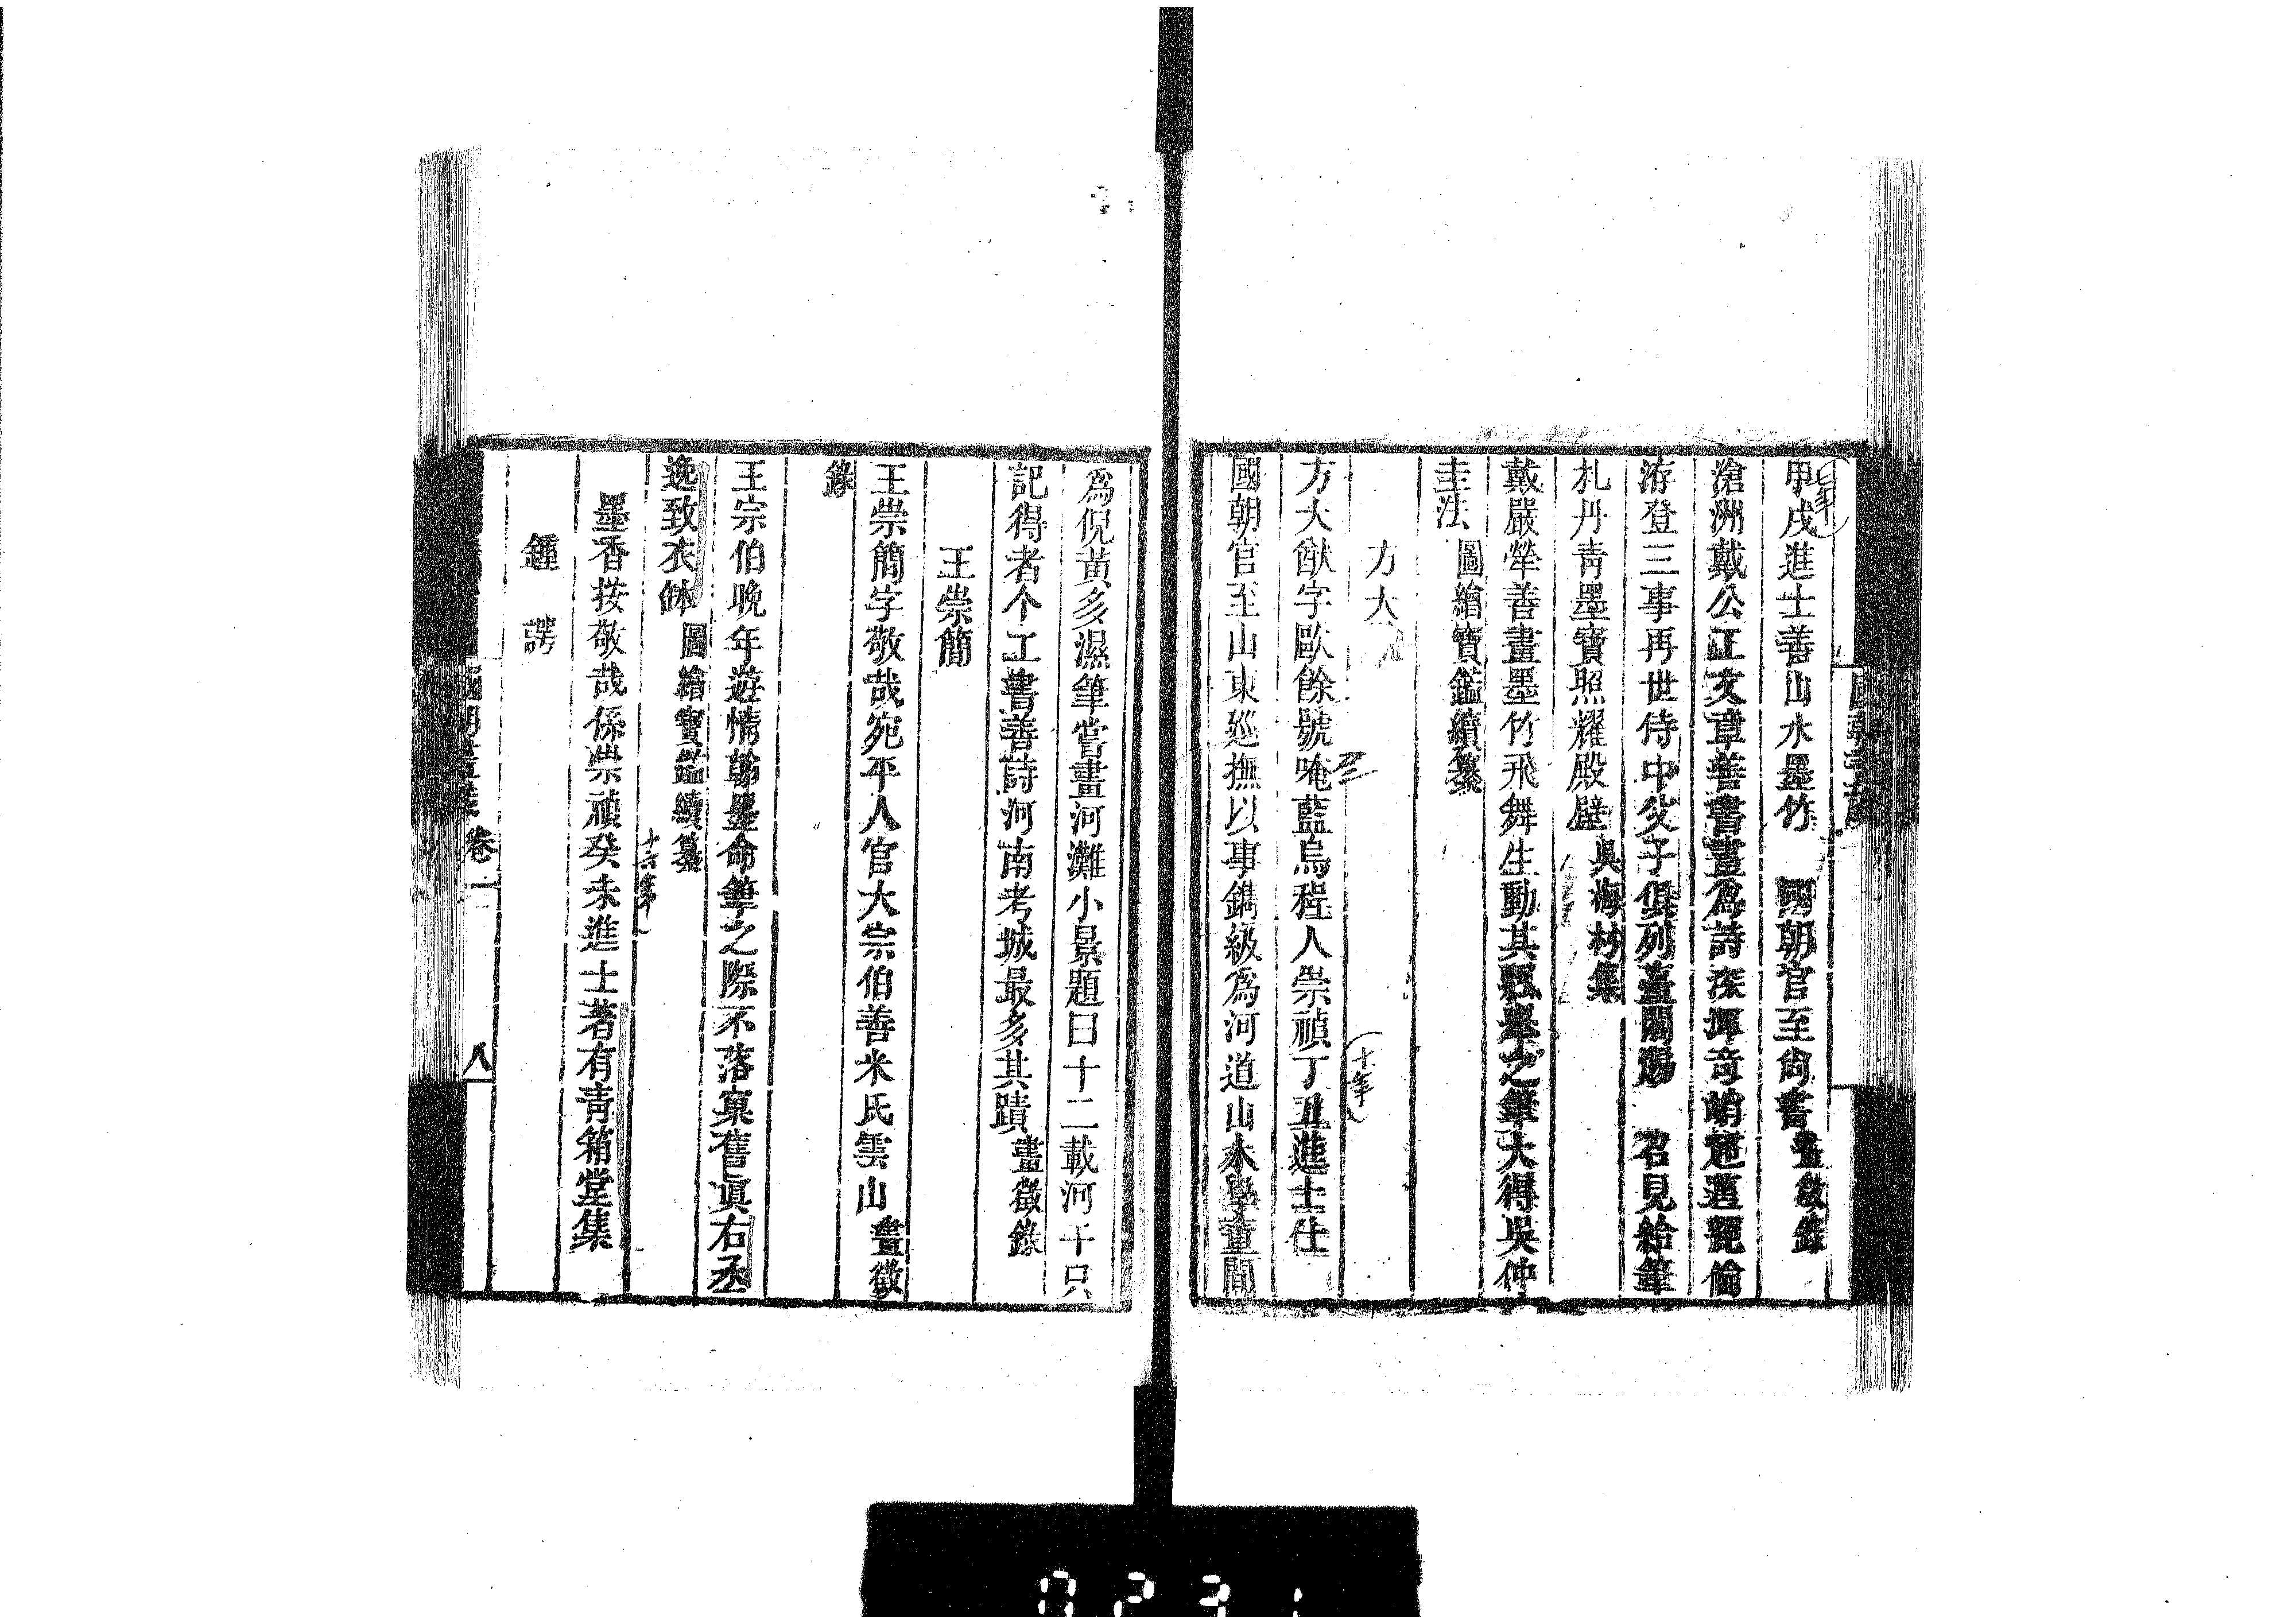 甲戌進士善山水墨竹　國朝官至尚書畫徵錄
滄洲戴公正文章善書畫為詩深揮奇峭冠邁麗倫
游登三事再世侍中父子俱列臺閣賜　召見給筆
札丹青墨寶照耀殿壁吳梅村集
戴嚴犖善畫墨竹飛舞生動其飄舉之筆大得吳仲
圭法　圖繪寶鑑續纂
方大
方大猷字歐餘號唵藍烏程人崇禎丁丑進士仕
國朝官至山東廵撫以事鐫級為河道山水學董間
為倪黃多濕筆嘗畫河灘小景題曰十二載河干只
記得者个工書善詩河南考城最多其蹟畫徵錄
王崇簡
王崇簡字敬哉宛平人官大宗伯善米氏雲山畫徵
錄
王宗伯晚年遊情翰墨命筆之際不落窠舊眞右丞
逸致衣鉢圖繪寶鑑續纂
墨香按敬哉係崇禎癸未進士著有青箱堂集
鍾諤
國朝畫識卷一
八
七年
十年
十六年
0231